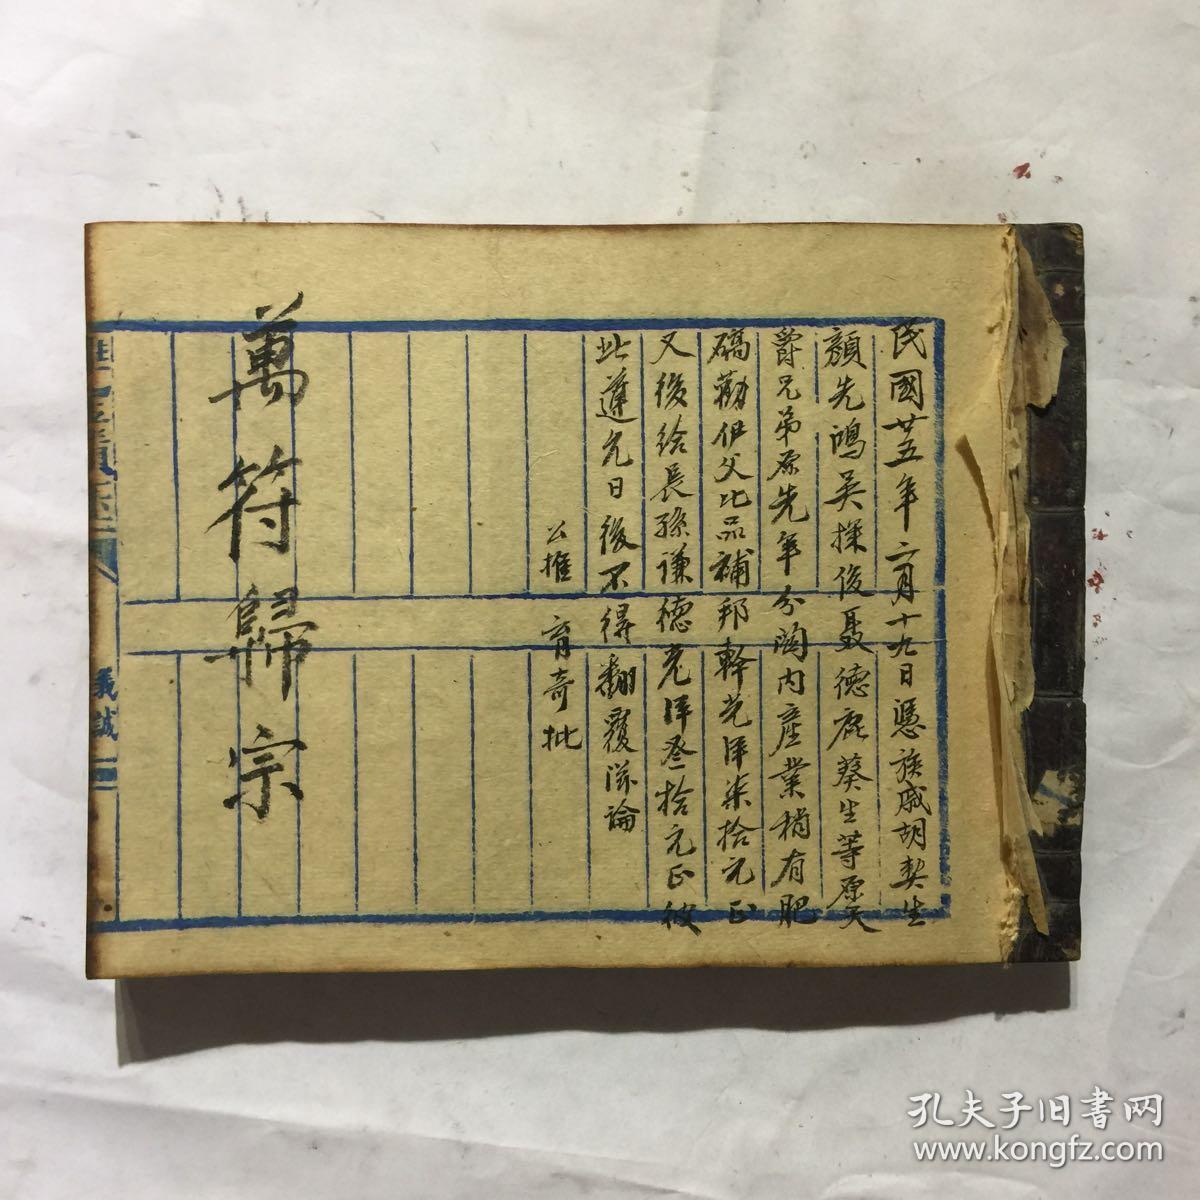 民國廿五年二月十九日憑族戚胡契生
顏先鴻吳探俊聂德 葵生等原天
爵兄弟原先年分關内産業稍有肥
磽勸伊父比品補邦幹光洋柒拾元正
又後给長孫谦德光洋叁拾元正彼
此遵允日後不得翻覆 論
公推 育奇批
萬符歸宗
義誠
孔夫子旧書网
www.kongfz.com